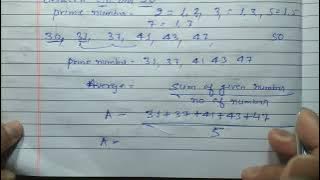 prime number - 2 = 1,2, 3 = 1,3, 5 = 1,5
7 = 1,3
30, 31, 37, 41, 43, 47 50
prime number - 31, 37, 41 43 47
Average = sum of given number
no of number
A = 31+37+41+43+47
5
A =